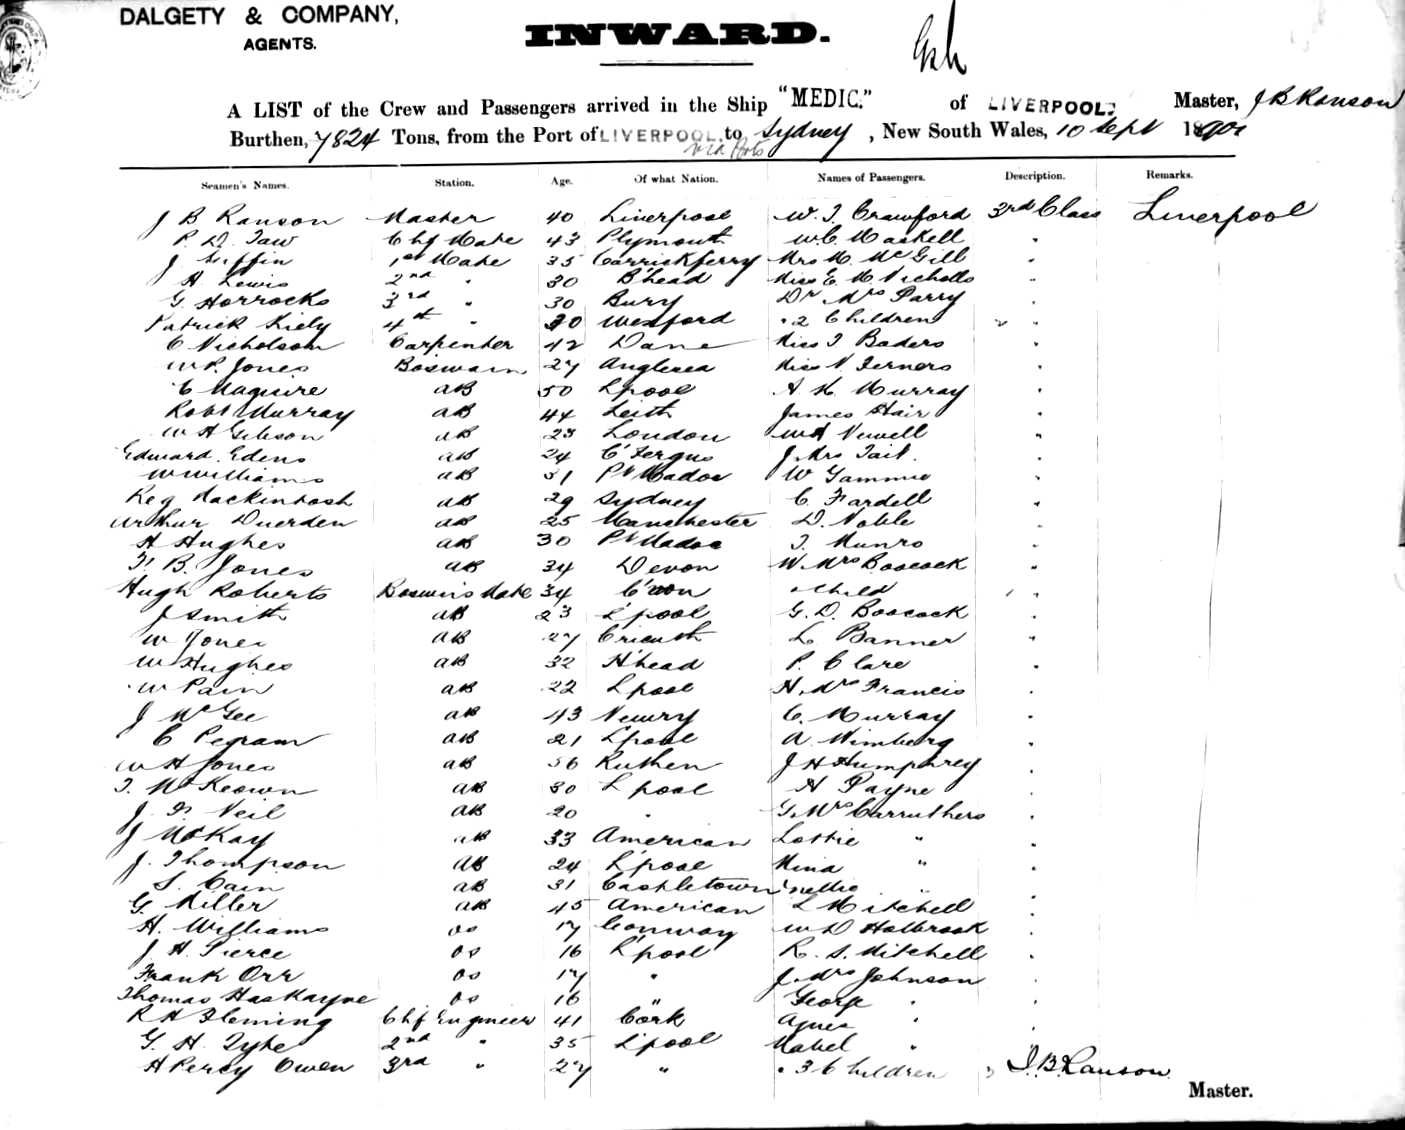 DALGETY & COMPANY,
AGENTS.
INWARD.
A LIST of the Crew and Passengers arrived in the Ship "MEDIC." of LIVERPOOL. Master, J B Ranson
Burthen, 7824 Tons, from the Port of LIVERPOOL. to Sydney, New South Wales, 10 Sept 1890
via Ports
Seamen's Names. Station. Age. Of what Nation. Names of Passengers. Description. Remarks.
J B Ranson Master 40 Liverpool W. J. Crawford 3rd Class Liverpool
P. D. Taw Chf Mate 43 Plymouth W. C. Maskell "
J Griffin 1st Mate 35 Carrickferry Mrs M. McGill "
H Lewis 2nd " 30 B'head Miss E. M. Nicholls "
G Horrocks 3rd " 30 Bury Dr Mrs Parry "
Patrick Kiely 4th " 30 Wexford " 2 Children " "
C Nicholson Carpenter 42 Dane Miss I Baders "
W P. Jones Boswain 27 Anglesea Miss N Ferners "
C Maguire AB 50 L'pool A. K. Murray "
Robt Murray AB 44 Leith James Hair "
W H Gibson AB 23 London W H Newell "
Edward Edens AB 24 C'fergus J. Mrs Tait. "
W Williams AB 31 Pt Madoc W Gammie "
Reg Mackintosh AB 29 Sydney C. Fardell "
Arthur Duerden AB 25 Manchester D. Noble "
H Hughes AB 30 Pt Madoc T. Munro "
F. B. Jones AB 34 Devon W. Mrs Boocock "
Hugh Roberts Boswin's Mate 34 C'von " Child " "
J Smith AB 23 L'pool G. D. Boocock "
W Jones AB 27 Cricuth L Banner "
W Hughes AB 32 H'head P. Clare "
W Pain AB 22 L'pool H. Mrs Francis "
J McGee AB 43 Newry C. Murray "
C Pegram AB 21 L'pool A. Wimberg "
W H Jones AB 56 Ruthen J H Humphrey "
T. McKeown AB 30 L'pool H Payne "
J. F. Neil AB 20 " G. Mrs Carruthers "
J McKay AB 33 American Lottie " "
J. Thompson AB 24 L'pool Mina " "
S. Cain AB 31 Castletown Nellie " "
G. Miller AB 45 American L Mitchell "
H. Williams OS 17 Conway W D Holbrook "
J. H. Pierce OS 16 L'pool R. S. Mitchell "
Frank Orr OS 17 " J. Mrs Johnson "
Thomas Haskayne OS 16 " George " "
R H Fleming Chf Engineer 41 Cork Agnes " "
G. H. Tyhe 2nd " 35 L'pool Mabel "
H Percy Owen 3rd " 27 " " 3 Children " J. B. Ranson
Master.